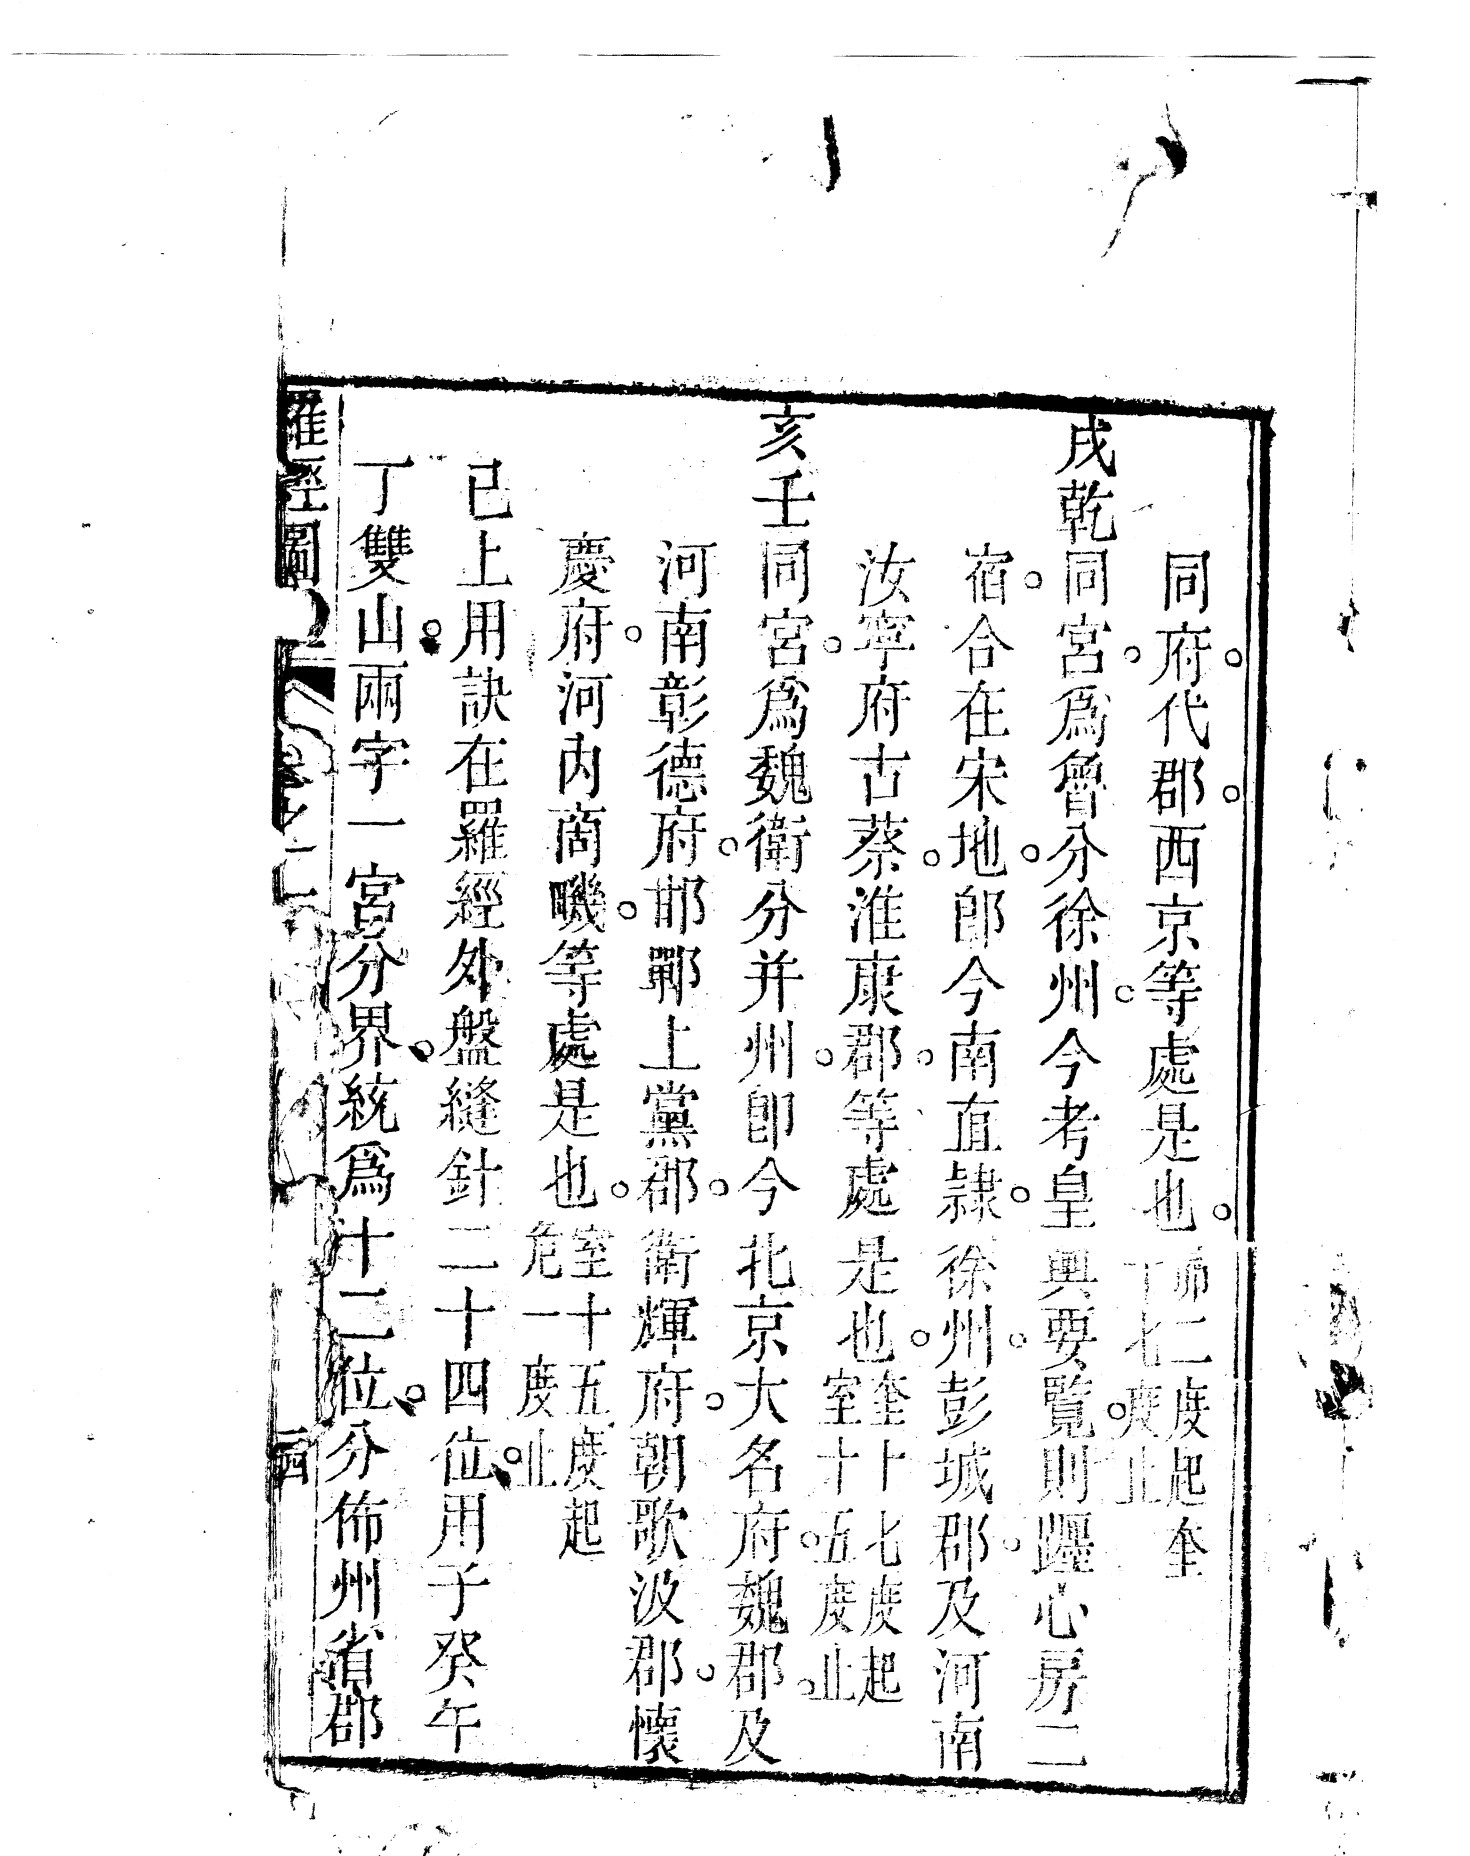 同府代郡西京等處是也 二度起奎 七度止
戌乾同宮爲魯分徐州今考皇輿要覽則躔心房二
宿合在宋地卽今南直隷徐州彭城郡及河南
汝寧府古蔡淮康郡等處是也 奎十七度起 室十五度止
亥壬同宮爲魏衛分并州卽今北京大名府魏郡及
河南彰德府邯鄲上黨郡衛輝府朝歌汲郡懷
慶府河內商畿等處是也 室十五度起 危一度止
已上用訣在羅經外盤縫針二十四位用子癸午
丁雙山兩字一宮分界統爲十二位分佈州省郡
羅經圖 卷之二